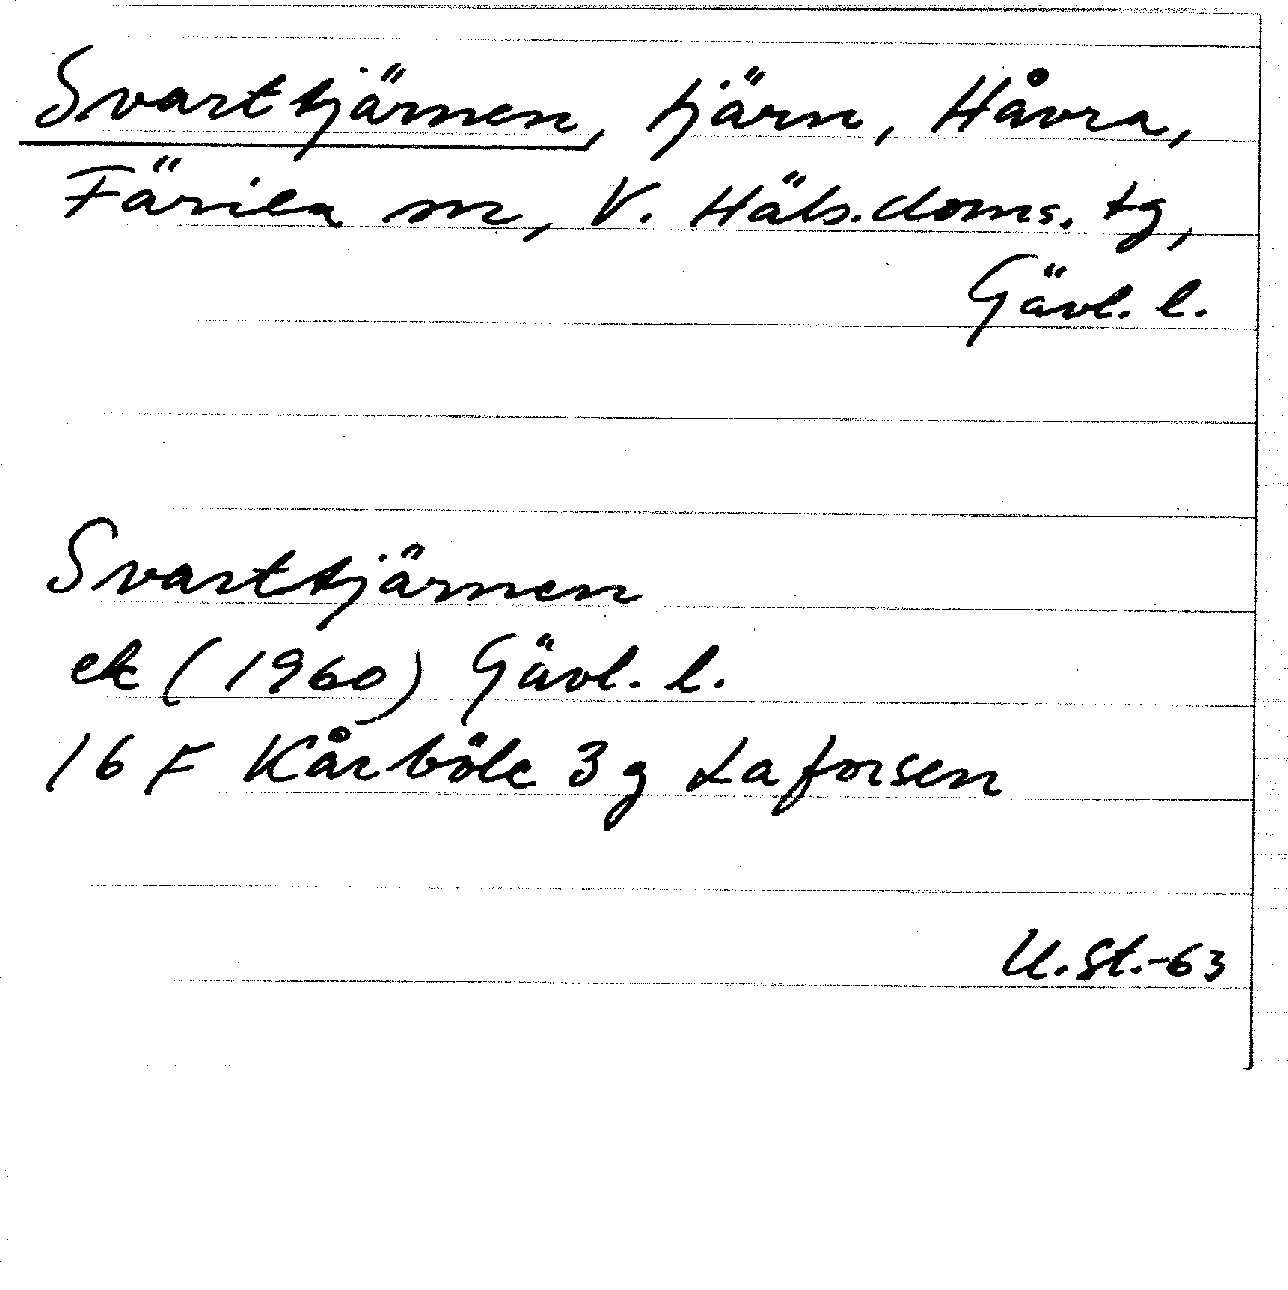 Svarttjärnen, tjärn, Håvra,
Färila sn, V. Häls. doms. tg,
Gävl. l.
Svarttjärnen
ek (1960) Gävl. l.
16 F Kårböle 3 g Laforsen
U.St.-63